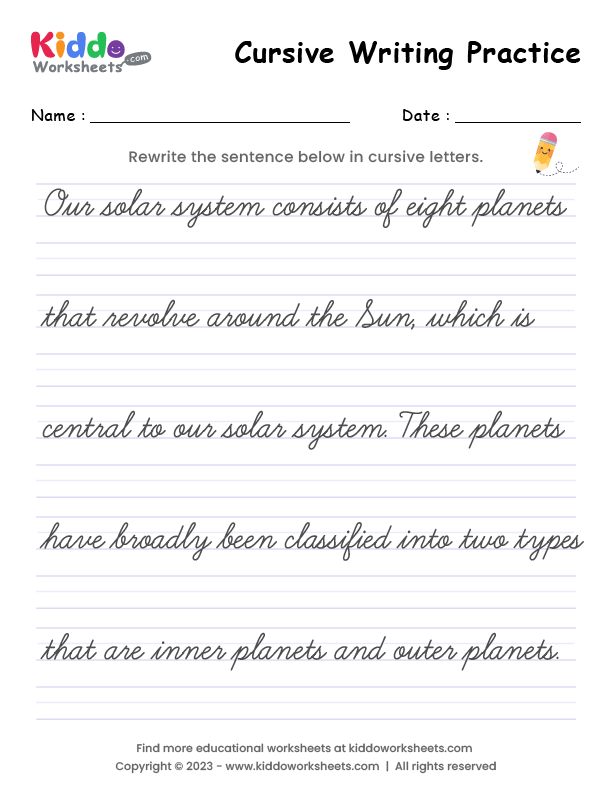 Kiddo
Worksheets.com
Cursive Writing Practice
Name :
Date :
Rewrite the sentence below in cursive letters.
Our solar system consists of eight planets
that revolve around the Sun, which is
central to our solar system. These planets
have broadly been classified into two types
that are inner planets and outer planets.
Find more educational worksheets at kiddoworksheets.com
Copyright © 2023 - www.kiddoworksheets.com | All rights reserved